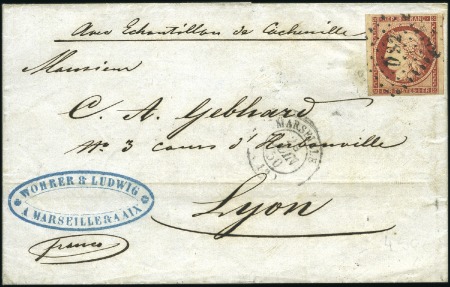 Avec Echantillon de Cachenille
Monsieur
C. A. Gebhard
No. 3 cours d'Herbouville
Lyon
franco
WOHRER & LUDWIG
A MARSEILLE & A AIX
MARSEILLE
JUIN
50
FRANC